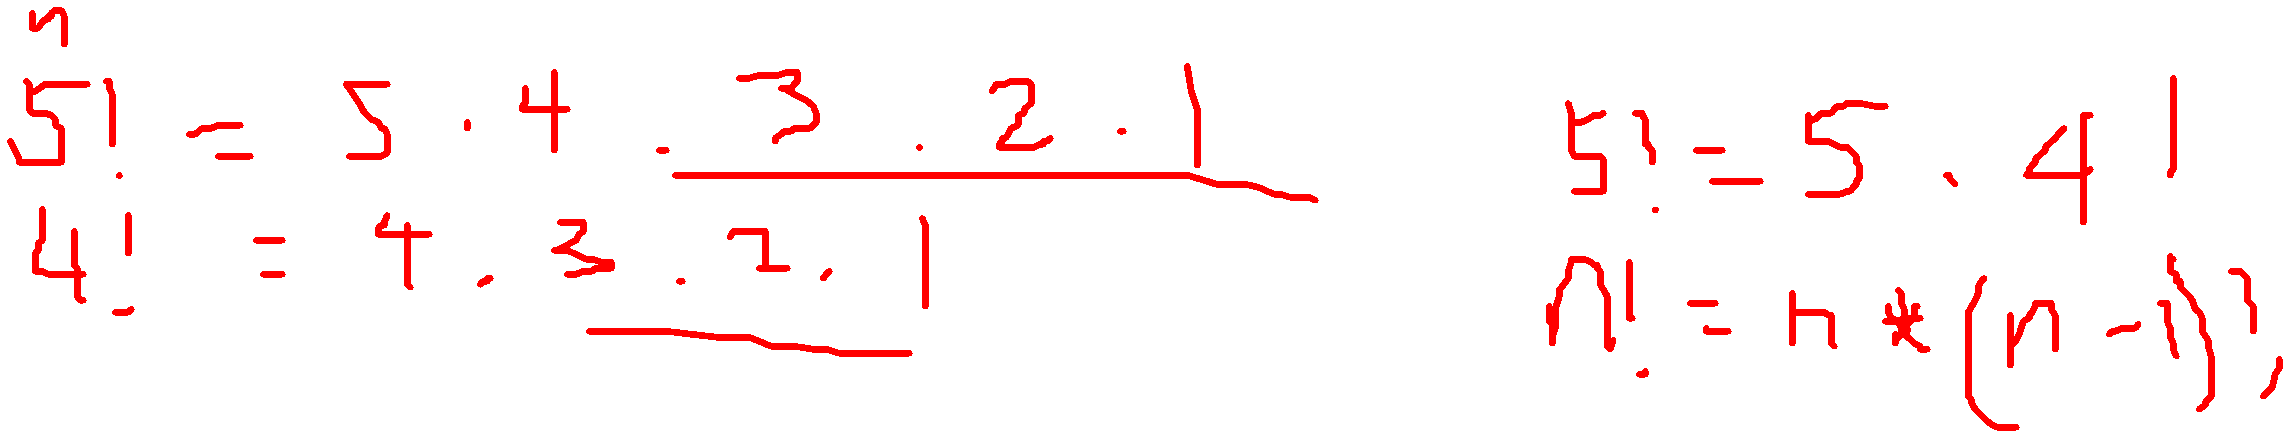 n
5! = 5 . 4 . 3 . 2 . 1
4! = 4 . 3 . 2 . 1
5! = 5 . 4!
n! = n * (n - 1)!